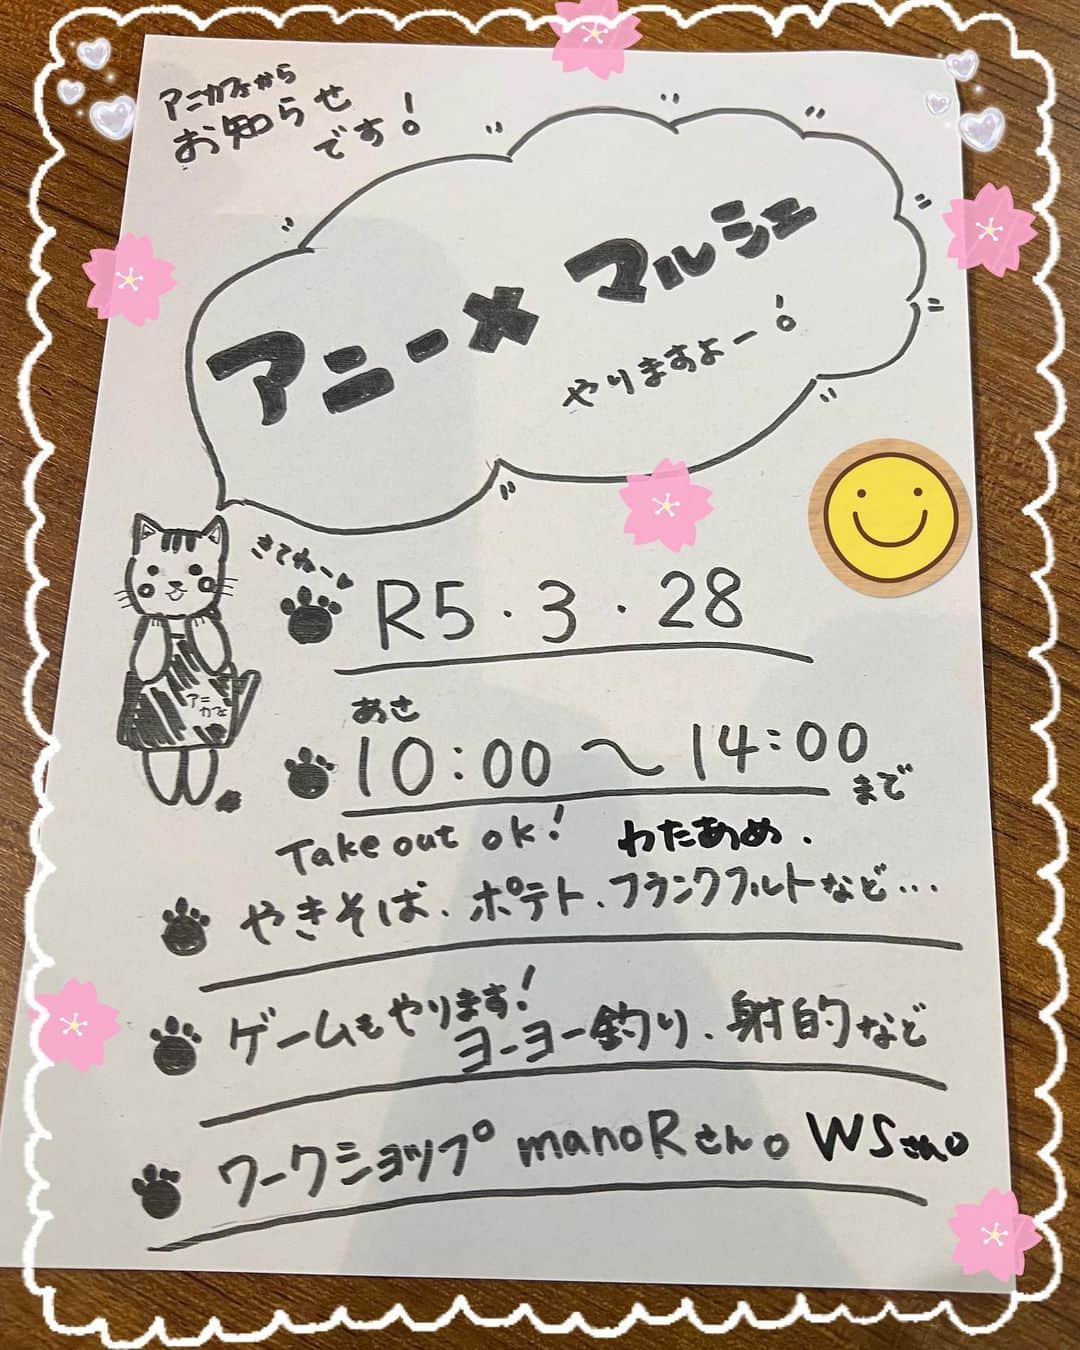 アニカフェから
お知らせ
です!
アニー× マルシェ
やりますよー!
きてねー♥
R5・3・28
あさ
10:00〜14:00
まで
アニ
カフェ
Take out ok!
わたあめ、
やきそば、ポテト、フランクフルトなど…
ゲームもやります!
ヨーヨー釣り、射的など
ワークショップ manoRさん。WSさん。